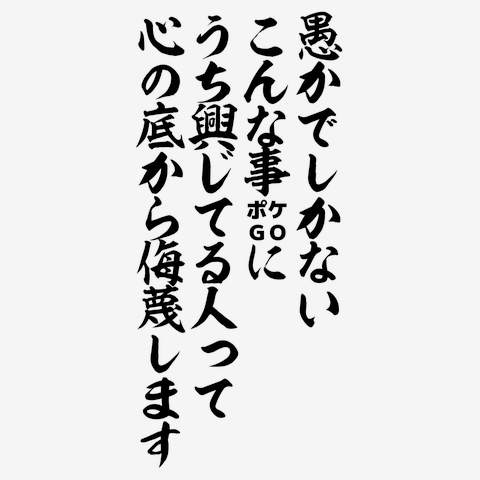 愚かでしかない
こんな事ポケGOに
うち興じてる人って
心の底から侮蔑します